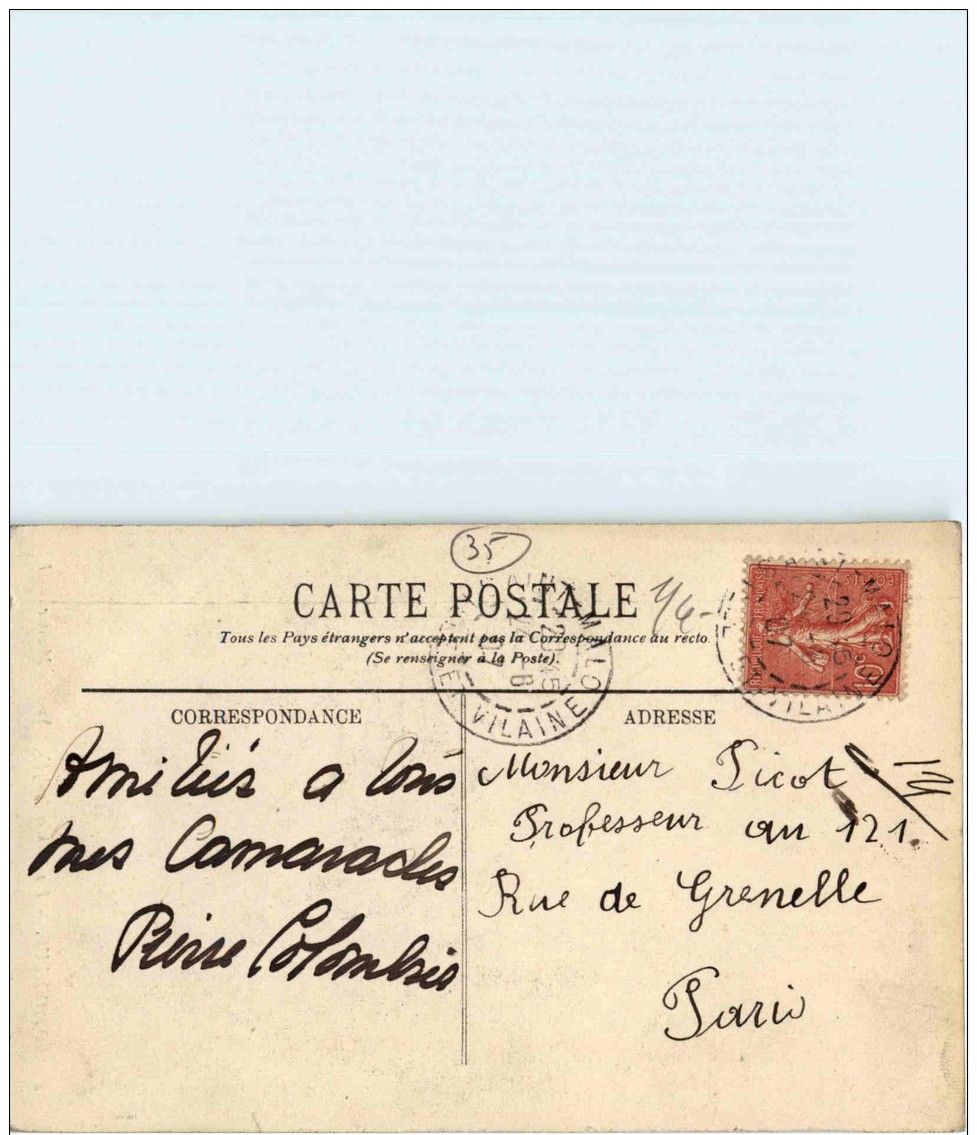 35
CARTE POSTALE
Tous les Pays étrangers n'acceptent pas la Correspondance au recto
(Se renseigner à la Poste).
CORRESPONDANCE
Amitiés a tous
mes Camarades
Pierre Colombis
ADRESSE
Monsieur Picot
Professeur au 121.
Rue de Grenelle
Paris
MALO
VILAINE
20
10c